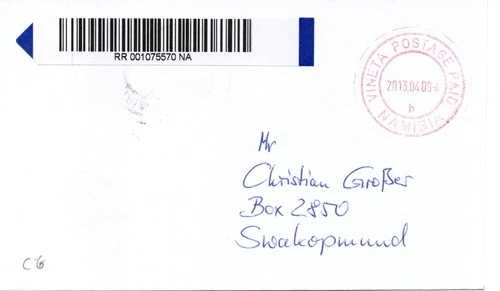 RR 001075570 NA
VINETA POSTAGE PAID
2013.04.09-4
h
NAMIBIA
Mr
Christian Großer
Box 2850
Swakopmund
C6